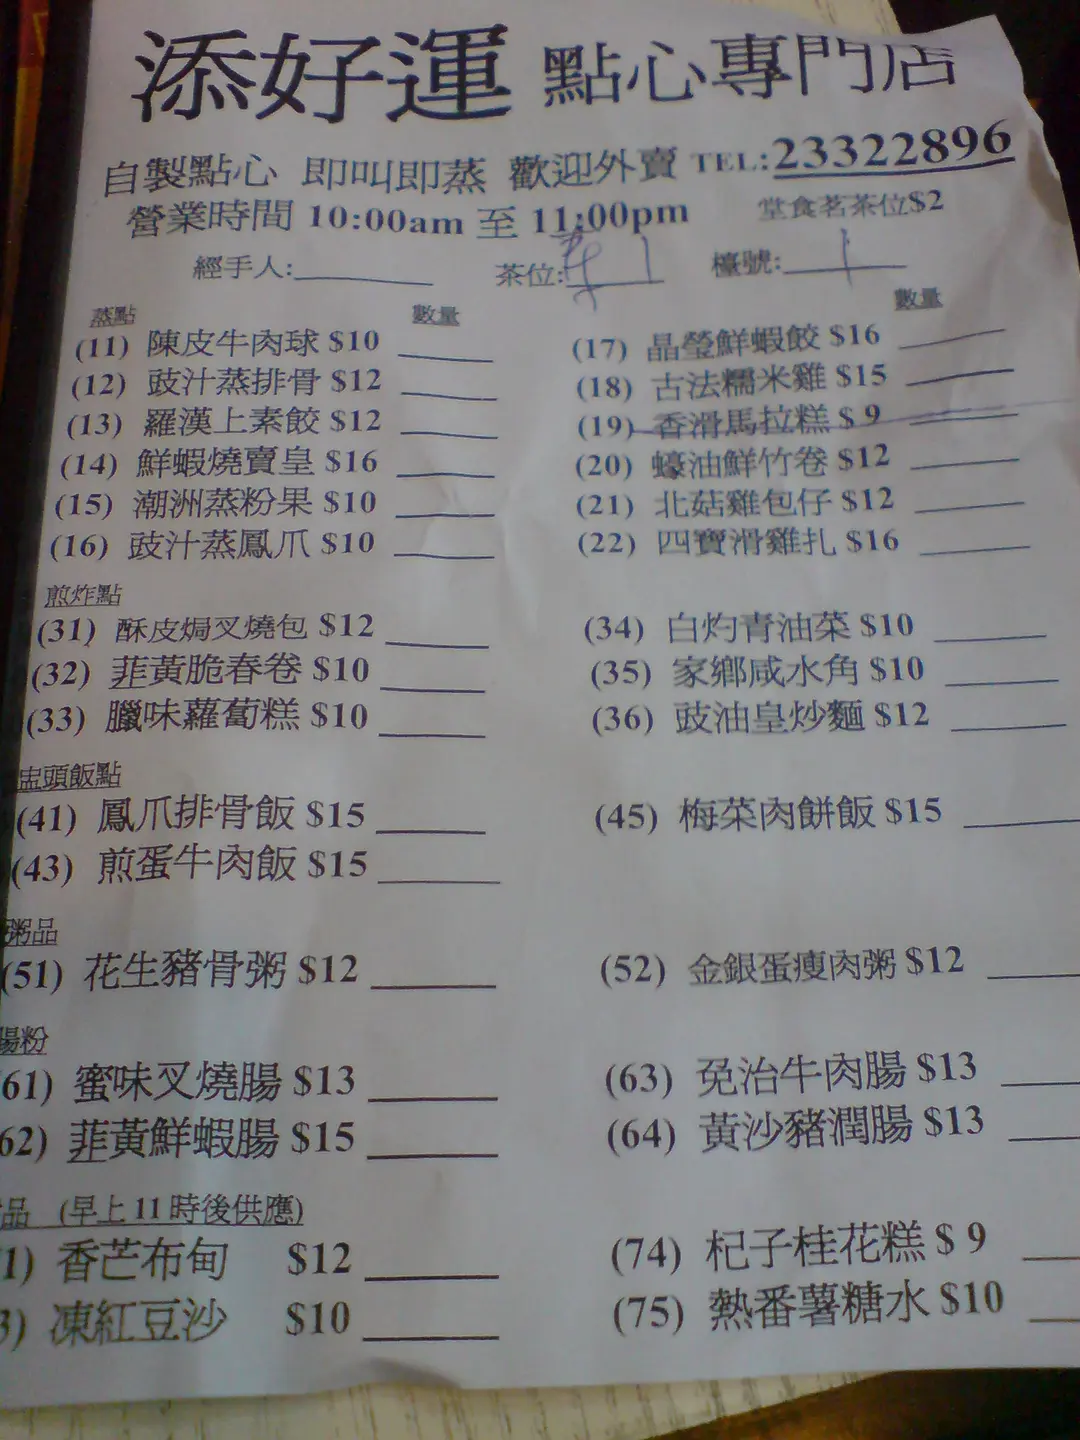 添好運 點心專門店
自製點心 即叫即蒸 歡迎外賣 TEL:23322896
營業時間 10:00am 至 11:00pm 堂食茗茶位$2
經手人: 茶位: 檯號: 1
蒸點 數量 數量
(11) 陳皮牛肉球 $10 (17) 晶瑩鮮蝦餃 $16
(12) 豉汁蒸排骨 $12 (18) 古法糯米雞 $15
(13) 羅漢上素餃 $12 (19) 香滑馬拉糕 $ 9
(14) 鮮蝦燒賣皇 $16 (20) 蠔油鮮竹卷 $12
(15) 潮洲蒸粉果 $10 (21) 北菇雞包仔 $12
(16) 豉汁蒸鳳爪 $10 (22) 四寶滑雞扎 $16
煎炸點
(31) 酥皮焗叉燒包 $12 (34) 白灼青油菜 $10
(32) 韮黃脆春卷 $10 (35) 家鄉咸水角 $10
(33) 臘味蘿蔔糕 $10 (36) 豉油皇炒麵 $12
盅頭飯點
(41) 鳳爪排骨飯 $15 (45) 梅菜肉餅飯 $15
(43) 煎蛋牛肉飯 $15
粥品
(51) 花生豬骨粥 $12 (52) 金銀蛋瘦肉粥 $12
腸粉
61) 蜜味叉燒腸 $13 (63) 免治牛肉腸 $13
62) 韮黃鮮蝦腸 $15 (64) 黃沙豬潤腸 $13
品 (早上 11 時後供應)
1) 香芒布甸 $12 (74) 杞子桂花糕 $ 9
3) 凍紅豆沙 $10 (75) 熱番薯糖水 $10